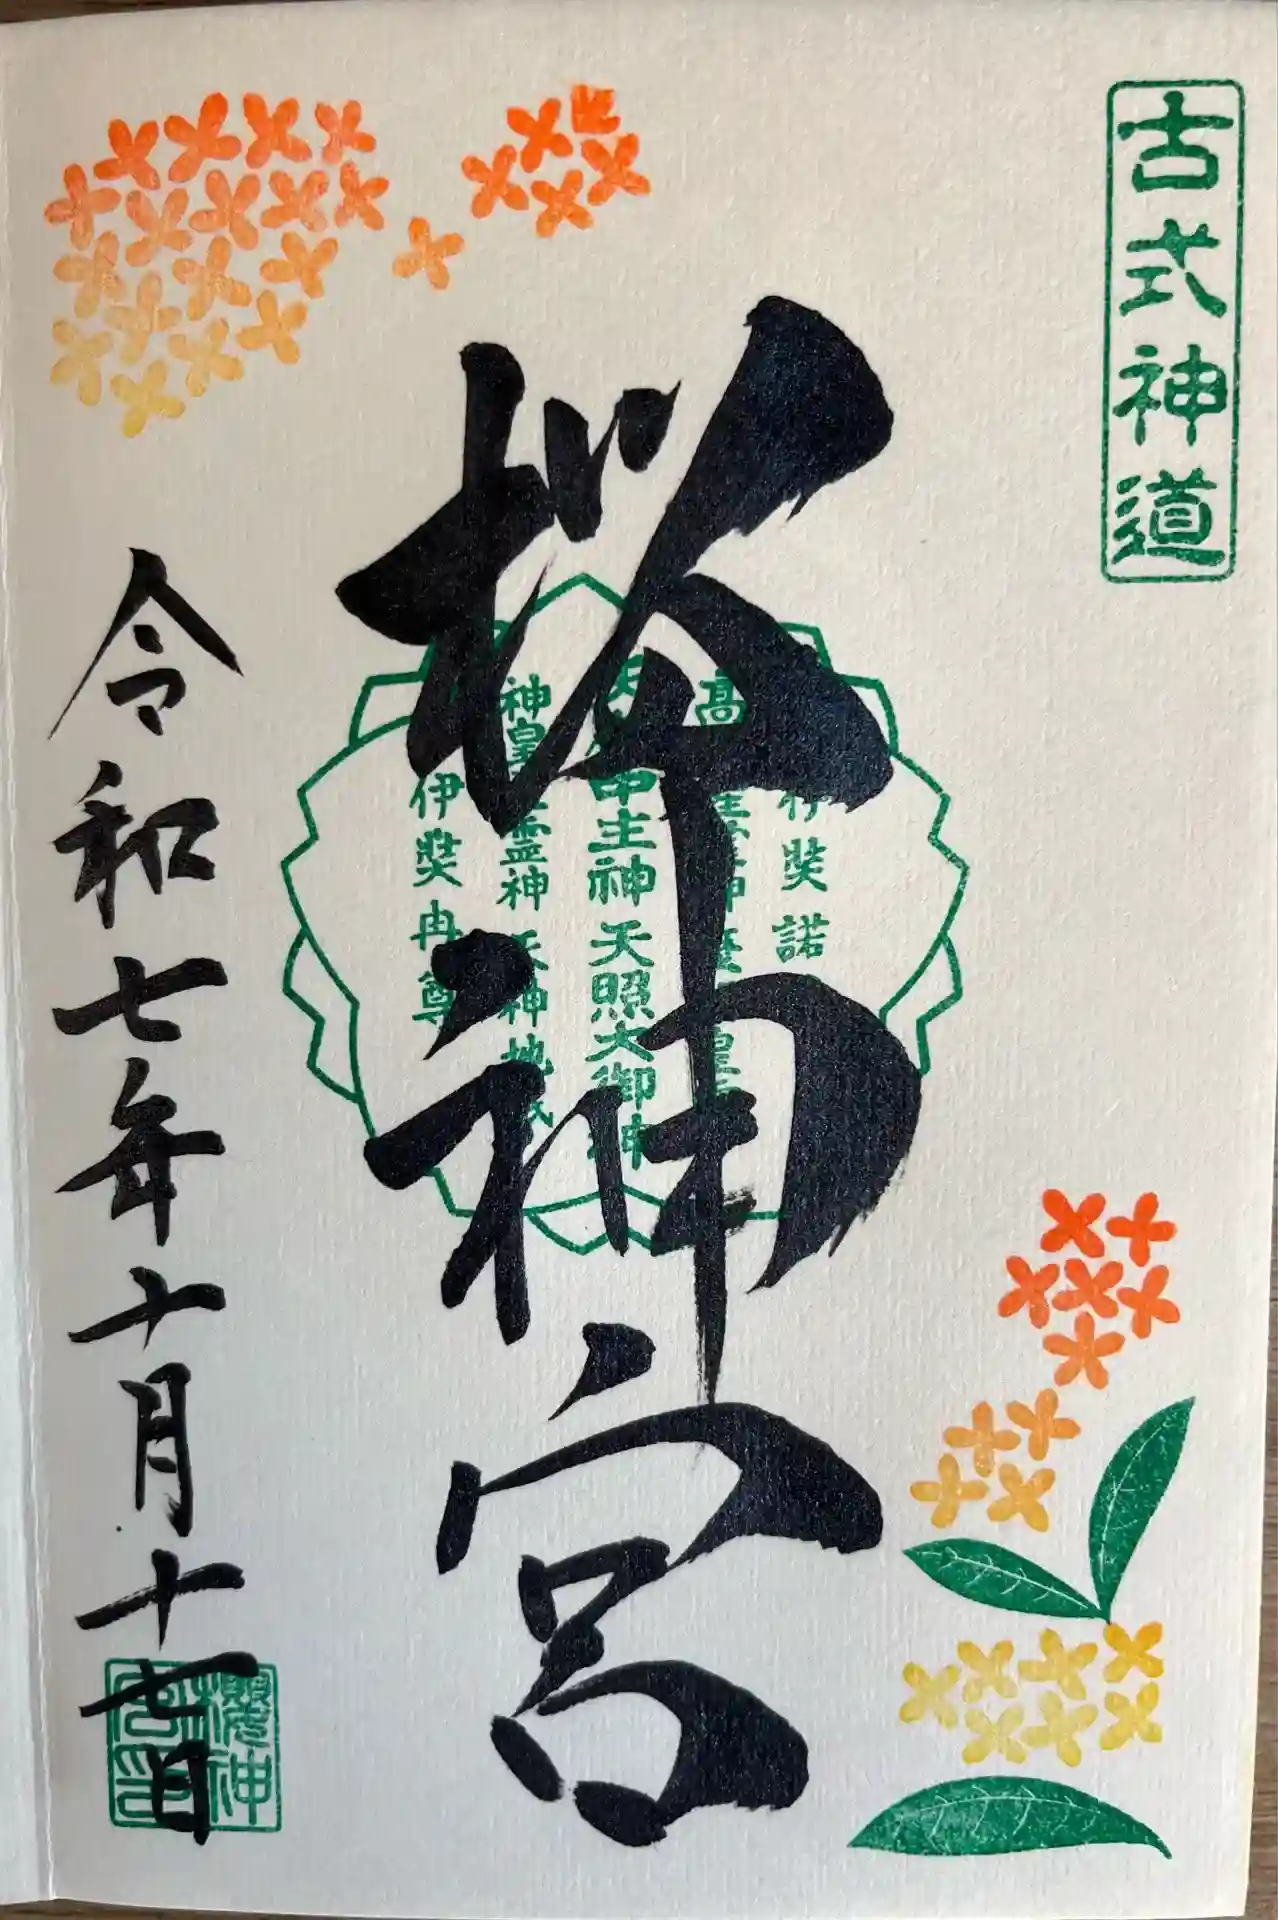 古式神道
桜神宮
伊奘諾
高
天 中主神 天照大御神
神皇 霊神 天神地祇
伊奘冉尊
令和七年十月十七日
櫻神宮印